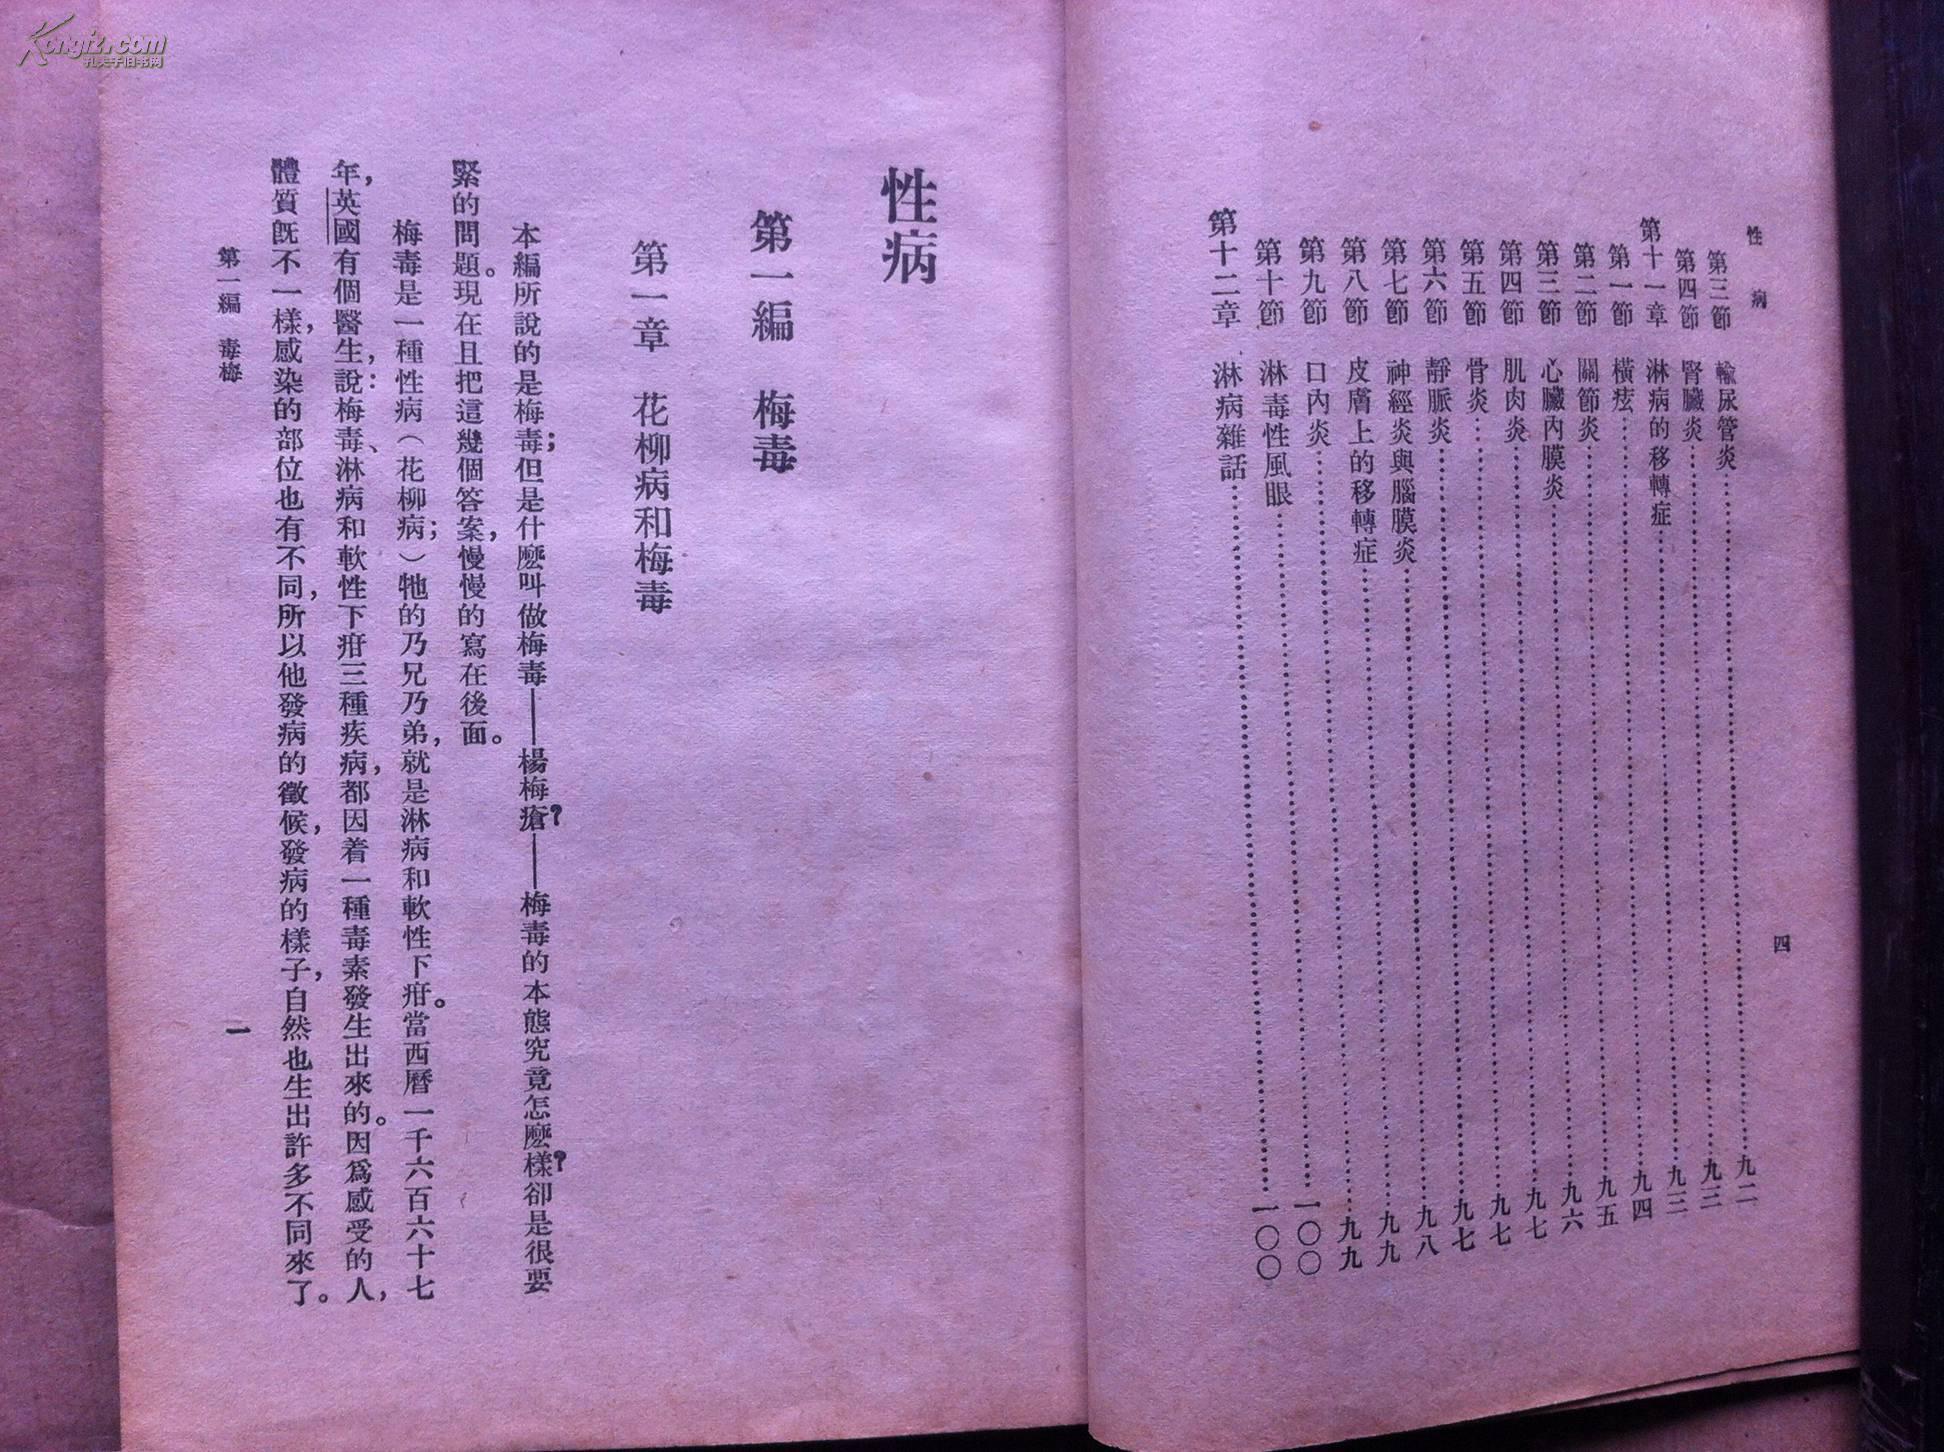 Kongfz.com
孔夫子旧书网
性病
四
第三節 輸尿管炎……九二
第四節 腎臟炎……九三
第十一章 淋病的移轉症……九三
第一節 橫痃……九四
第二節 關節炎……九五
第三節 心臟內膜炎……九六
第四節 肌肉炎……九七
第五節 骨炎……九七
第六節 靜脈炎……九七
第七節 神經炎與腦膜炎……九八
第八節 皮膚上的移轉症……九九
第九節 口內炎……九九
第十節 淋毒性風眼……一〇〇
第十二章 淋病雜話……一〇〇
性病
第一編 梅毒
第一章 花柳病和梅毒
本編所說的是梅毒；但是什麼叫做梅毒——楊梅瘡？——梅毒的本態究竟怎麼樣？卻是很要
緊的問題。現在且把這幾個答案，慢慢的寫在後面。
梅毒是一種性病（花柳病；）牠的乃兄乃弟，就是淋病和軟性下疳。當西曆一千六百六十七
年，英國有個醫生，說：梅毒、淋病和軟性下疳三種疾病，都因着一種毒素發生出來的。因爲感受的人，
體質旣不一樣，感染的部位也有不同，所以他發病的徵候，發病的樣子，自然也生出許多不同來了。
第一編 毒梅
一